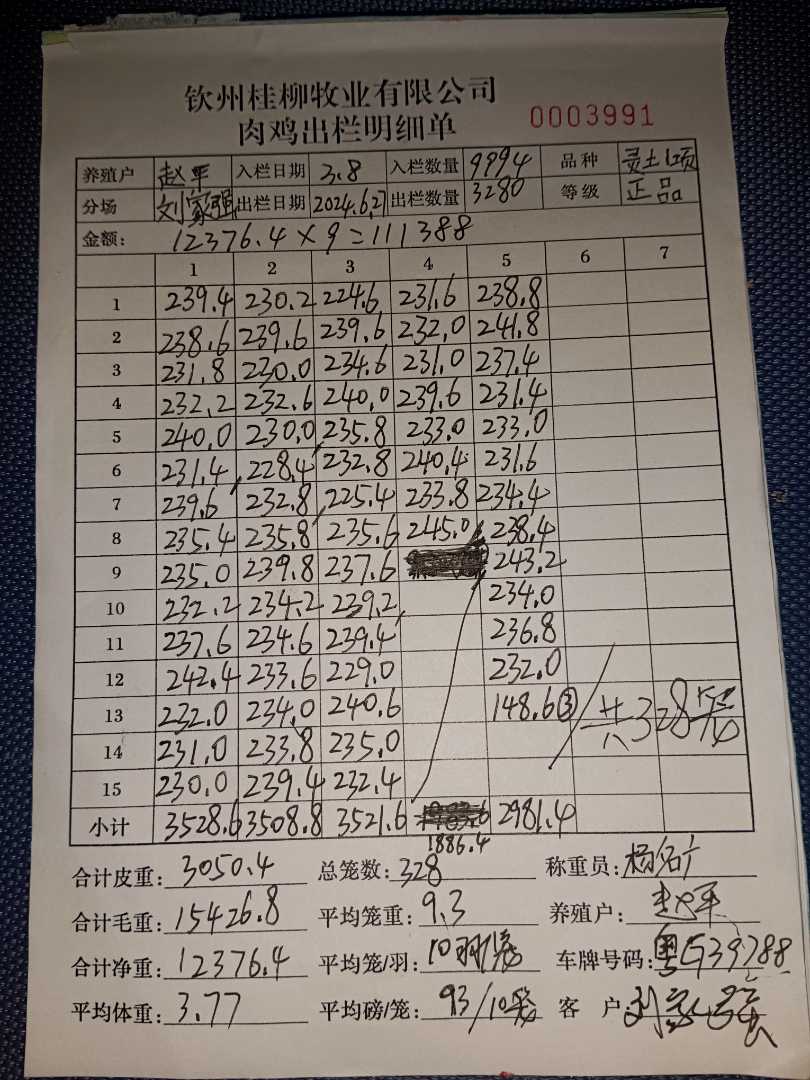 钦州桂柳牧业有限公司
肉鸡出栏明细单 0003991
养殖户 赵平 入栏日期 3.8 入栏数量 9994 品种 灵土1项
分场 刘家强 出栏日期 2024.6.27 出栏数量 3280 等级 正品
金额: 12376.4×9=111388
1 2 3 4 5 6 7
1 239.4 230.2 224.6 231.6 238.8
2 238.6 239.6 239.6 232.0 241.8
3 231.8 230.0 234.6 231.0 237.4
4 232.2 232.6 240.0 239.6 231.4
5 240.0 230.0 235.8 233.0 233.0
6 231.4 228.4 232.8 240.4 231.6
7 239.6 232.8 225.4 233.8 234.4
8 235.4 235.8 235.6 245.0 238.4
9 235.0 239.8 237.6 243.2
10 232.2 234.2 239.2 234.0
11 237.6 234.6 239.4 236.8
12 242.4 233.6 229.0 232.0
13 232.0 234.0 240.6 148.6③ 共328
14 231.0 233.8 235.0
15 230.0 239.4 232.4
小计 3528.6 3508.8 3521.6 2981.4
1886.4
合计皮重: 3050.4 总笼数: 328 称重员: 杨
合计毛重: 15426.8 平均笼重: 9.3 养殖户: 赵平
合计净重: 12376.4 平均笼/羽: 10羽/笼 车牌号码: 粤G39788
平均体重: 3.77 平均磅/笼: 93/10 客户 刘家强